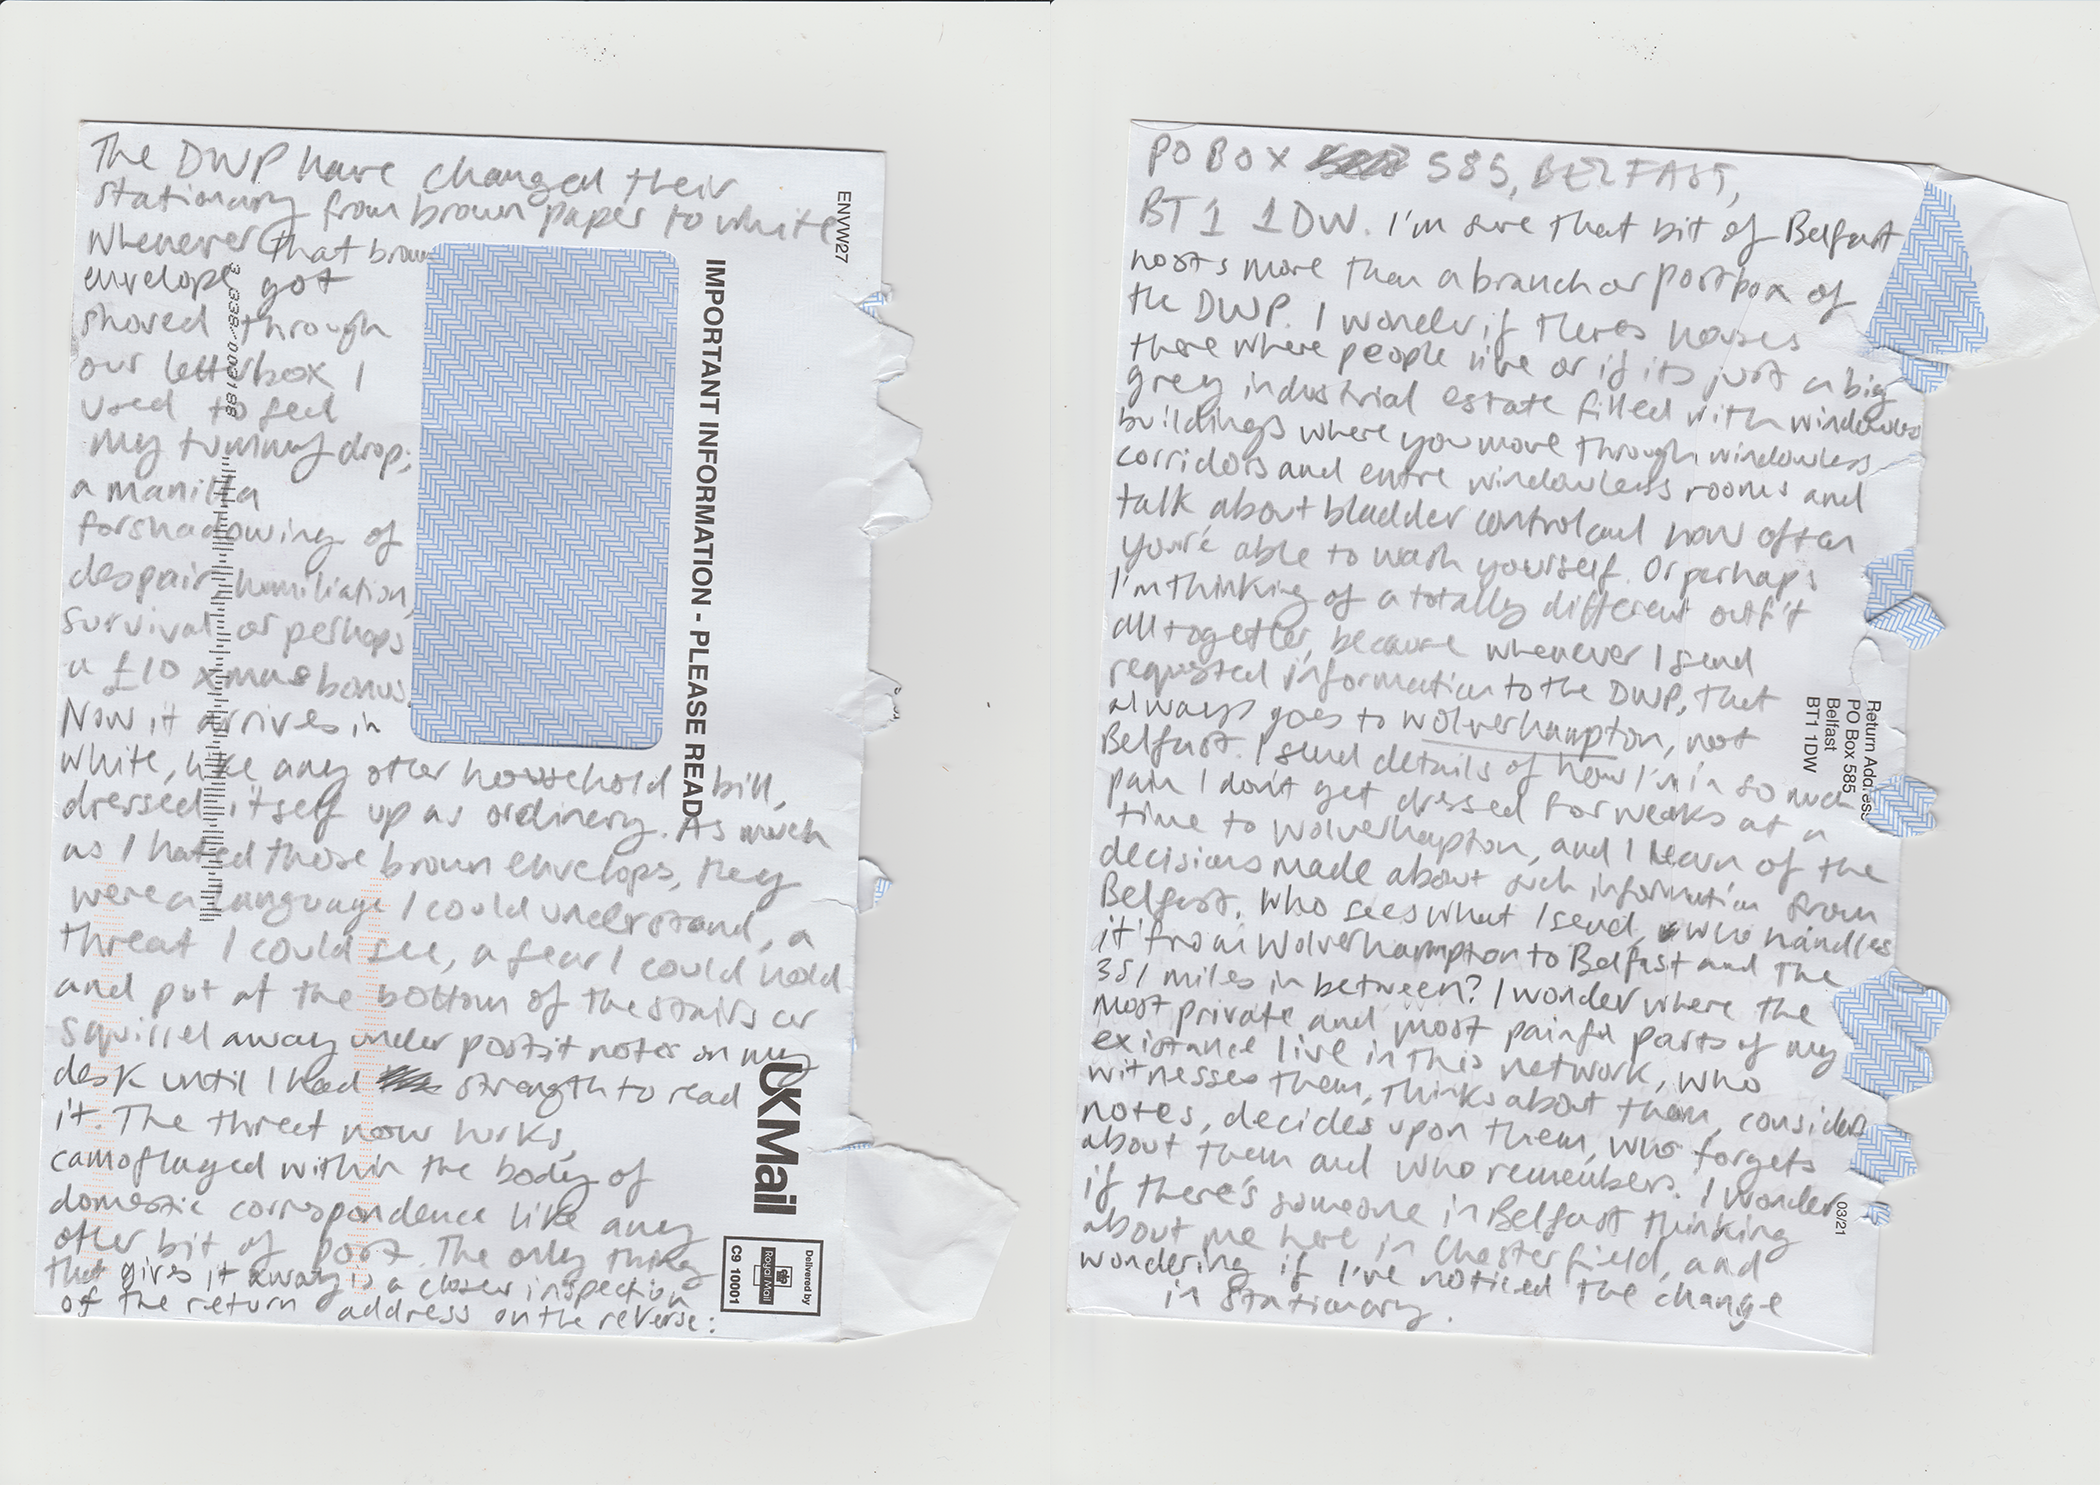 The DWP have changed their
stationary from brown paper to white
Whenever that brown
envelope got
shoved through
our letterbox I
used to feel
my tummy drop;
a manilla
forshadowing of
despair, humiliation,
survival or perhaps
a £10 xmas bonus.
Now it arrives in
white, like any other household bill,
dressed itself up as ordinery. As much
as I hated those brown envelops, they
were a language I could understand, a
threat I could see, a fear I could hold
and put at the bottom of the stairs or
squirrel away under postit notes on my
desk until I had strength to read
it. The threat now lurks,
camoflaged within the body of
domestic correspondence like any
other bit of post. The only thing
that gives it away is a closer inspection
of the return address on the reverse:
ENVW27
3 338/003188
IMPORTANT INFORMATION - PLEASE READ
UKMail
Delivered by
Royal Mail
C9 10001
PO BOX 585, BELFAST,
BT1 1DW. I'm sure that bit of Belfast
hosts more than a branch or postbox of
the DWP. I wonder if theres houses
there where people live or if its just a big
grey industrial estate filled with windowless
buildings where you move through windowless
corridors and entre windowless rooms and
talk about bladder control and how often
you're able to wash yourself. Or perhaps
I'm thinking of a totally different outfit
alltogether, because whenever I send
requested information to the DWP, that
always goes to Wolverhampton, not
Belfast. I send details of how I'm in so much
pain I don't get dressed for weaks at a
time to Wolverhampton, and I learn of the
decisions made about such information from
Belfast. Who sees what I send, who handles
it from Wolverhampton to Belfast and the
351 miles in between? I wonder where the
most private and most painful parts of my
existance live in this network, who
witnesses them, thinks about them, considers
notes, decides upon them, who forgets
about them and who remembers. I wonder
if there's someone in Belfast thinking
about me here in Chesterfield, and
wondering if I've noticed the change
in stationary.
Return Address
PO Box 585
Belfast
BT1 1DW
03/21